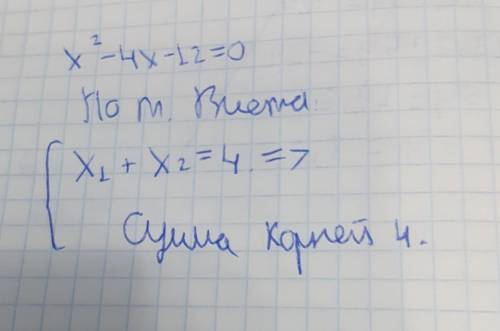 x² - 4x - 12 = 0
По т. Виета.
{ x₁ + x₂ = 4. =>
Сумма корней 4.